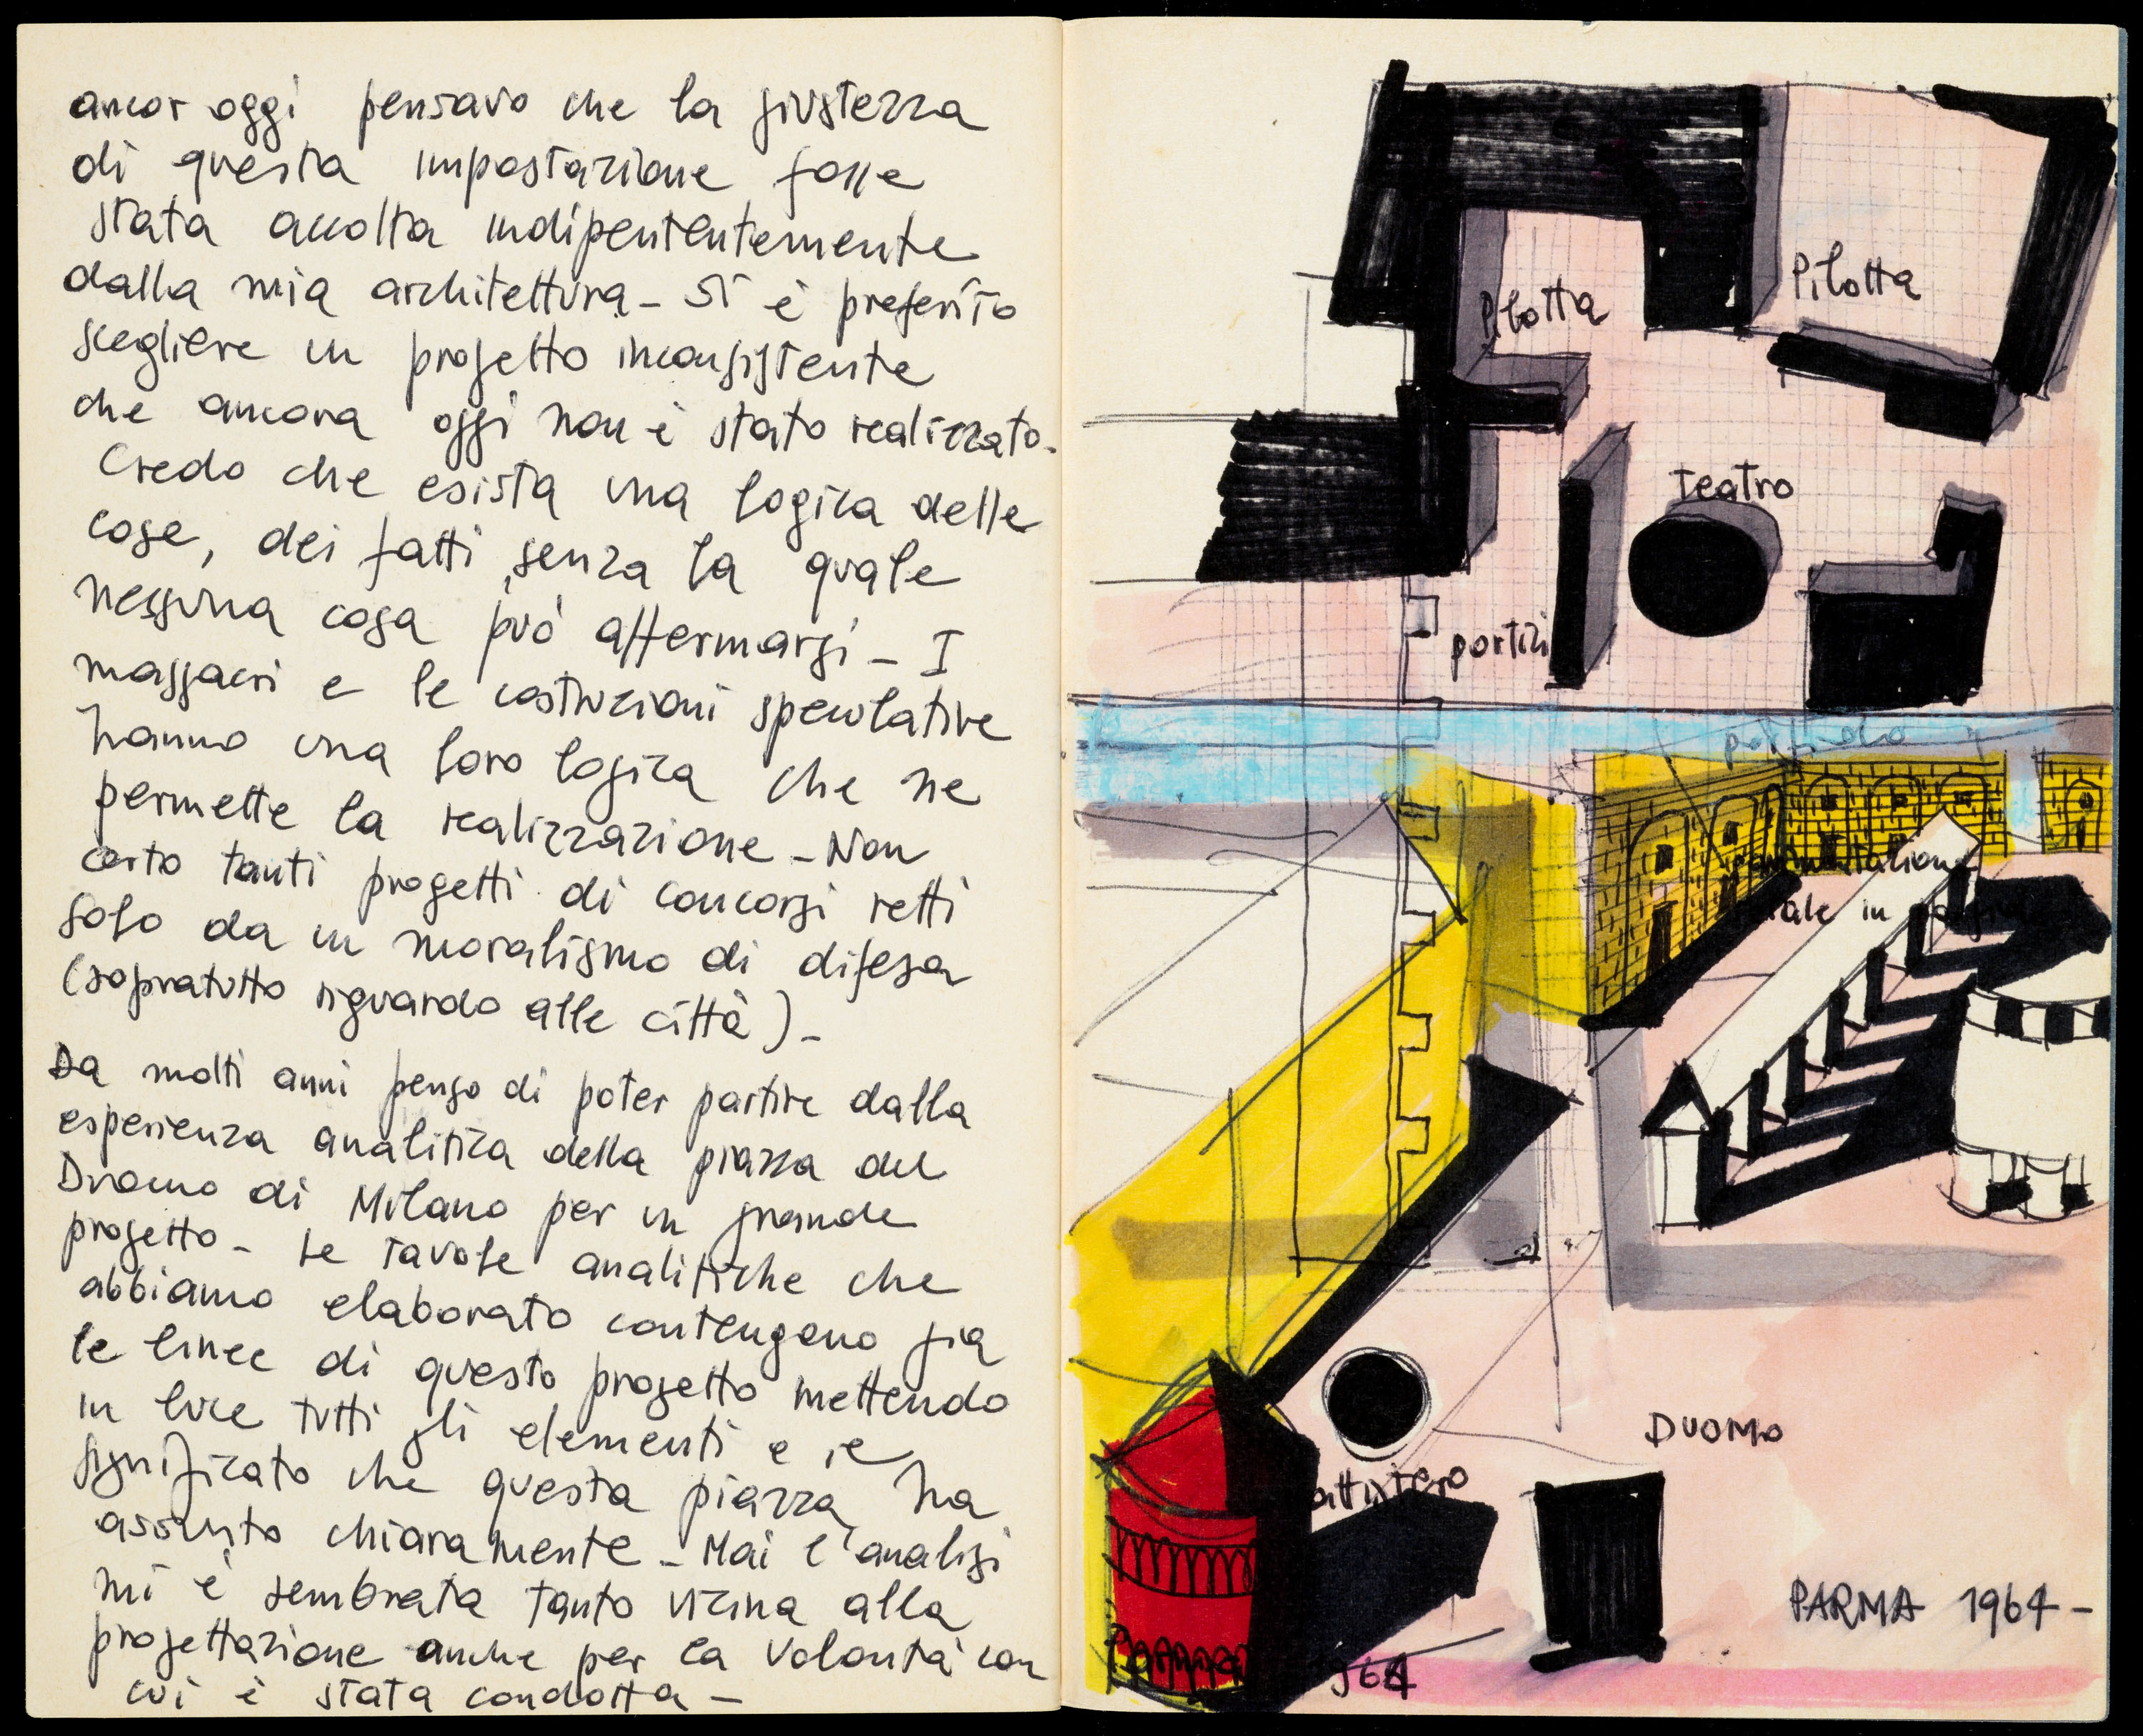 ancor oggi pensavo che la giustezza
di questa impostazione fosse
stata accolta indipententemente
dalla mia architettura - Si è preferito
scegliere un progetto inconsistente
che ancora oggi non è stato realizzato.
Credo che esista una logica delle
cose, dei fatti, senza la quale
nessuna cosa può affermarsi - I
massacri e le costruzioni speculative
hanno una loro logica che ne
permette la realizzazione - Non
certo tanti progetti di concorsi retti
solo da un moralismo di difesa
(sopratutto riguardo alle città) -
Da molti anni penso di poter partire dalla
esperienza analitica della piazza del
Duomo di Milano per un grande
progetto - Le tavole analitiche che
abbiamo elaborato contengono già
le linee di questo progetto mettendo
in luce tutti gli elementi e
significato che questa piazza ha
assunto chiaramente - Mai l'analisi
mi è sembrata tanto vicina alla
progettazione anche per la volontà con
cui è stata condotta -
Pilotta
Pilotta
teatro
portici
pavimentazione
in
DUOMO
Battistero
PARMA 1964 -
1964